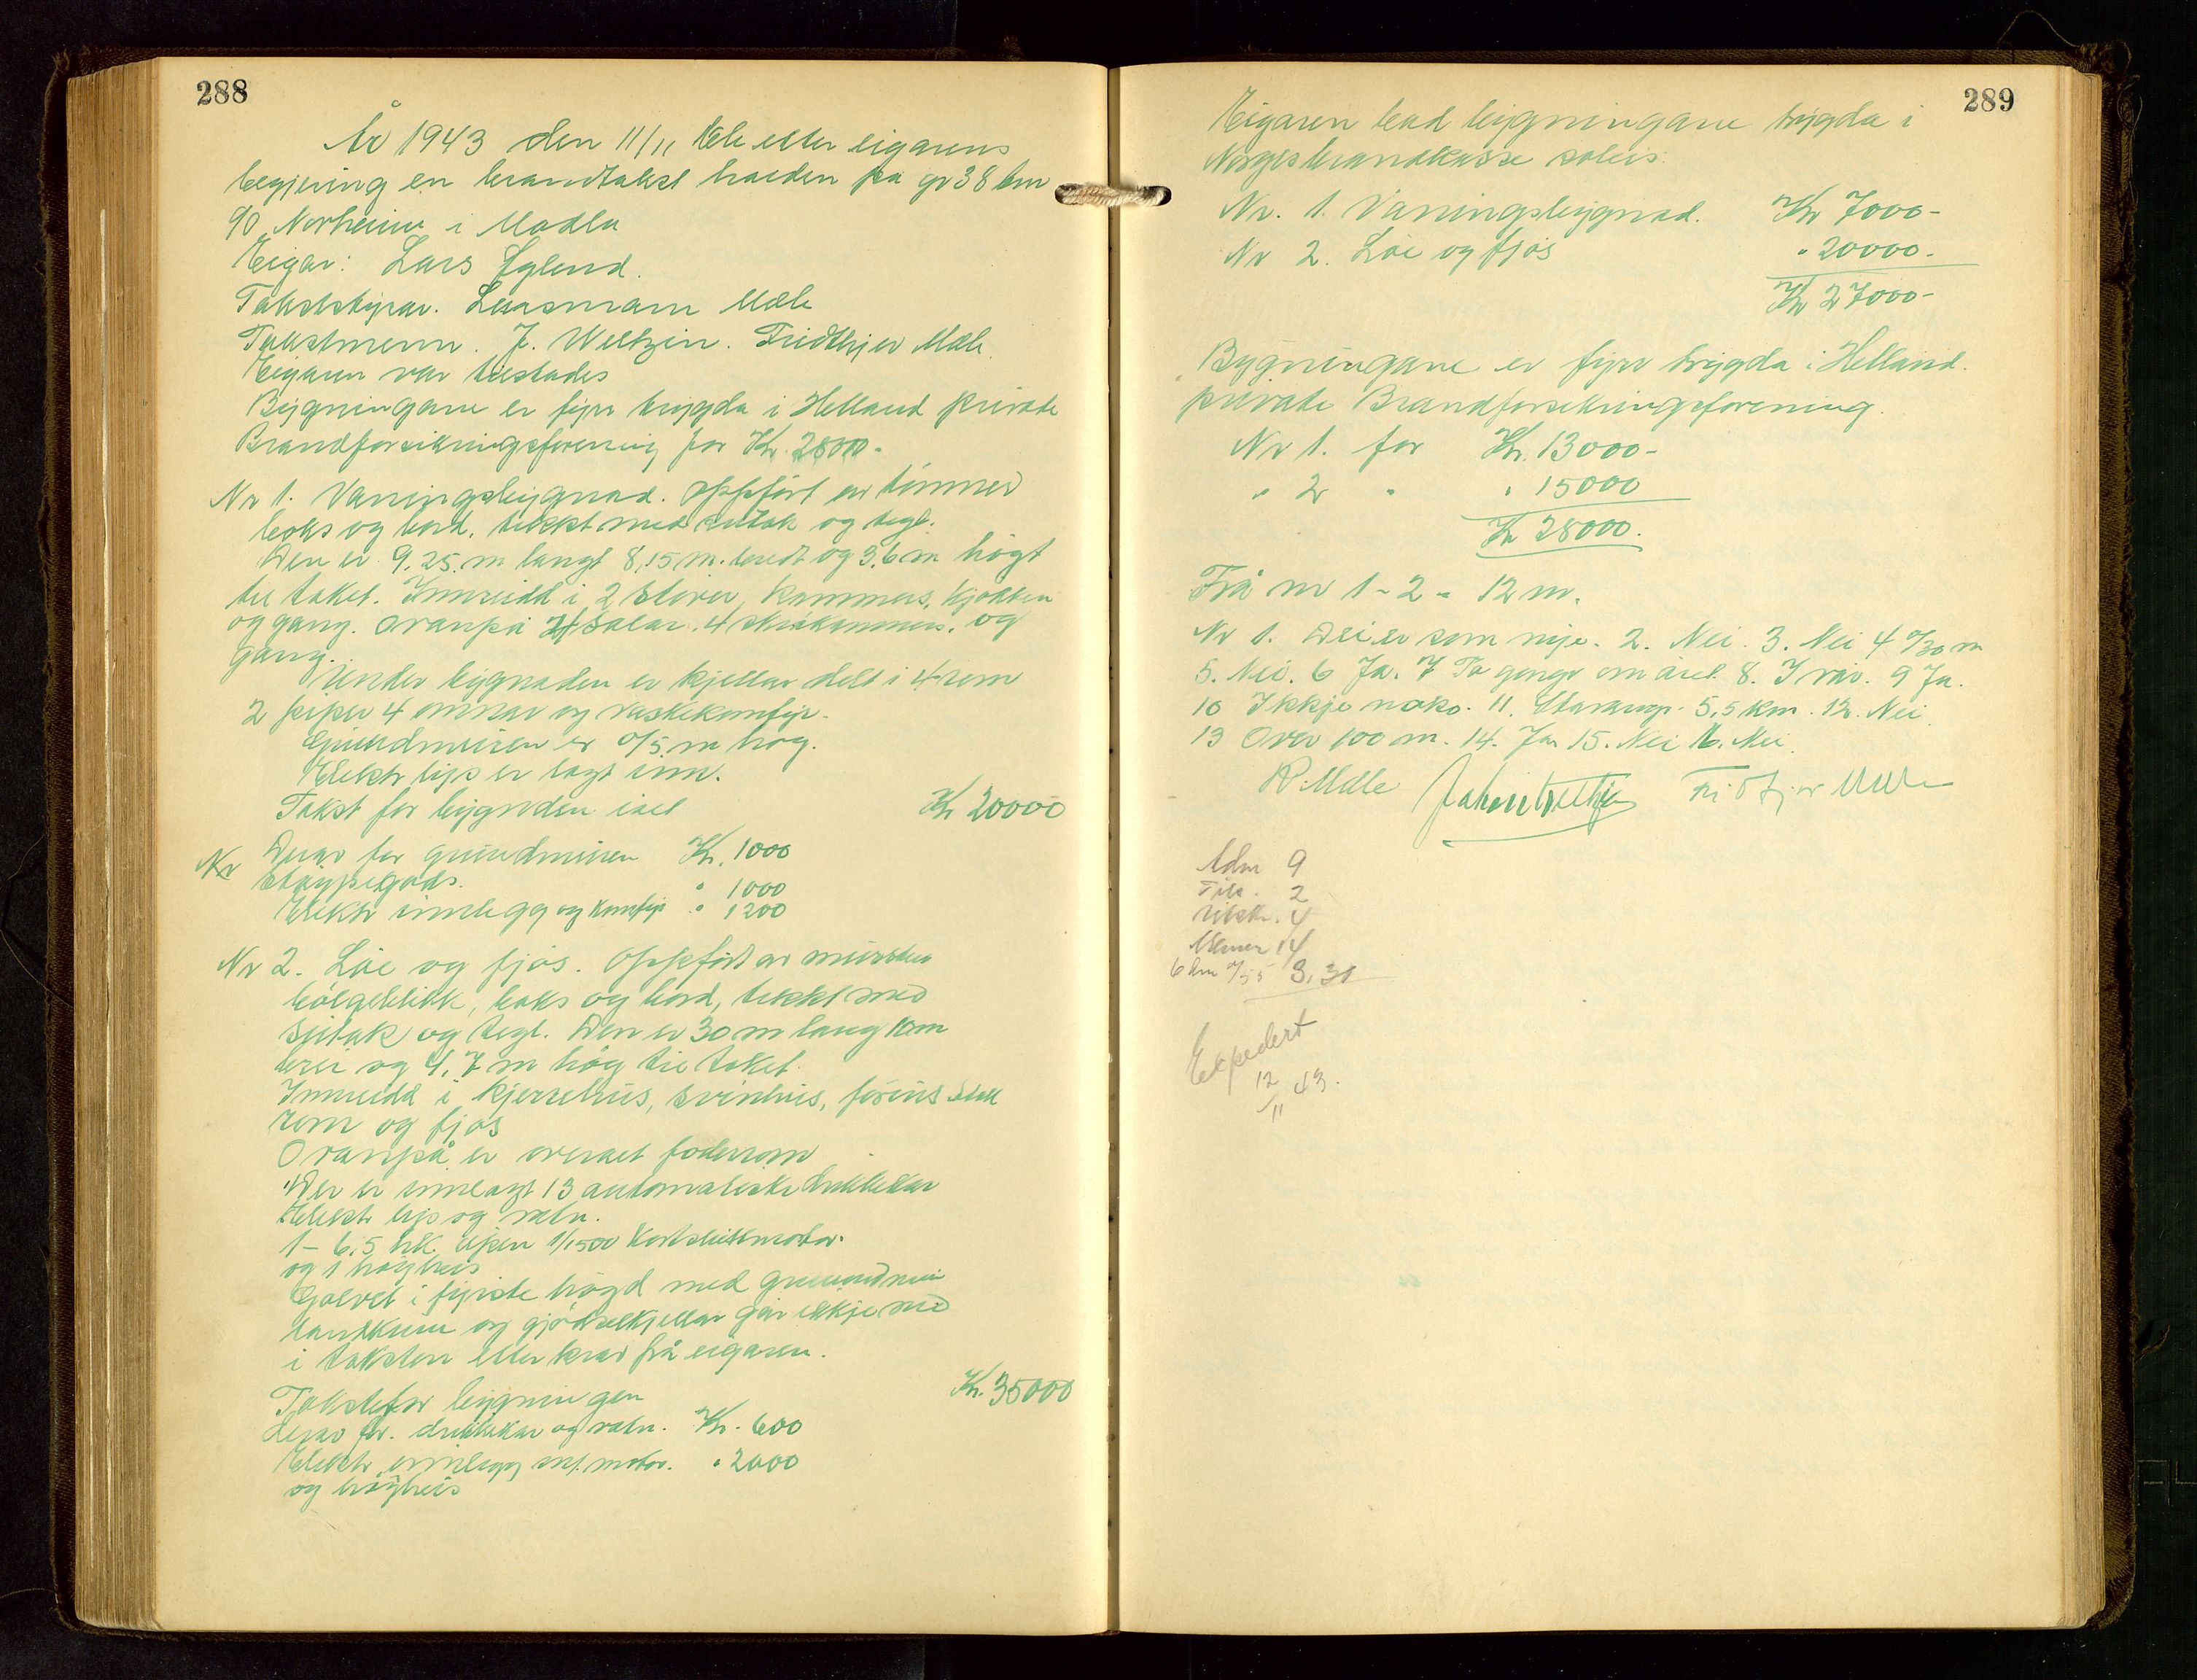 288
År 1943 den 11/11 ble etter eigarens
begjering en brandtakst halden på gr 38 bnr
90 Norheim i Madla
Eigar: Lars Egland.
Takststyrar. Lensmann Mæle
Takstmenn. J. Weltzin. Fridthjov Mæle.
Eigaren var tilstades
Bygningane er fyrr trygda i Helland private
Brandforsikringsforening for Kr. 28000-
Nr 1. Våningsbygnad. Oppført av tømmer
boks og bord, tekkt med sutak og tegl.
Den er 9,25 m langt 8,15 m. bredt og 3,6 m høgt
til taket. Innreidd i 2 Stover, kammers, kjøkken
og gang. Ovanpå 2 Salar, 4 skråkammers. og
gang.
Under bygnaden er kjellar delt i 4 rom
2 piper 4 omnar og vaskekomfyr.
Grundmuren er 0/5 m høg.
Elektr lys er lagt inn.
Takst for bygnaden ialt Kr 20000
Nr Derav for grundmuren Kr. 1000
Støypegods. " 1000
Elektr innlegg og komfyr " 1200
Nr 2. Løe og fjøs. Oppført av mursten
bølgeblikk, boks og bord, tekkt med
sutak og tegl. Den er 30 m lang 10 m
brei og 4,7 m høg til taket.
Innreidd i kjerrehus, svinhus, forhus Stall
rom og fjøs
Ovanpå er overalt foderrom
Der er innlagt 13 automatiske drikkekar
Elektr lys og vatn.
1 - 6,5 hk. open 1/1500 Kortsluttmotor.
og 1 høyheis
Golvet i fyrste høgd med grunnmur
landkum og gjødselkjellar går ikkje med
i taksten etter krav frå eigaren.
Takst for bygningen Kr. 35000
derav for. drikkekar og vatn. Kr. 600
Elektr. innlegg m/ motor. " 2000
og høyheis
289
Eigaren bad bygningane trygda i
Norges brandkasse soleis:
Nr. 1. Våningsbygnad. Kr 7000-
Nr 2. Løe og fjøs " 20000.-
Kr 27000-
Bygningane er fyrr trygda i Helland.
private Brandforsikringsforening.
Nr 1. for Kr. 13000-
" 2 " " 15000
Kr 28000.
Frå nr 1 - 2 = 12 m.
Nr 1. Dei er som nye. 2. Nei. 3. Nei 4 0/30 m
5. Nei. 6 Ja. 7 To gonge om året. 8. I rør. 9 Ja.
10 Ikkje noko. 11. Stavanger. 5,5 km. 12. Nei
13 Over 100 m. 14. Ja 15. Nei 16. Nei.
R. Mæle Fridtjov Mæle
Adm 9
Tils. 2
Utskr. 4
Menn 14
6 km 0/55 3,30
Expedert
12/11 43.